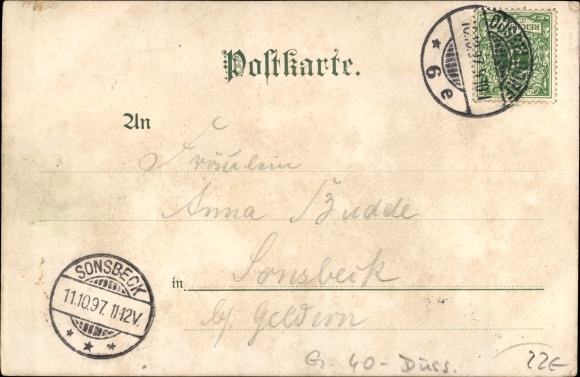 Postkarte.
An
Fräulein
Anna Budde
in Sonsbeck
b/ Geldern
SONSBECK
11.10.97. 11-12V.
* * *
DÜSSELDORF
* 6 e
REICHSPOST
Gr. 40- Düss.
22€